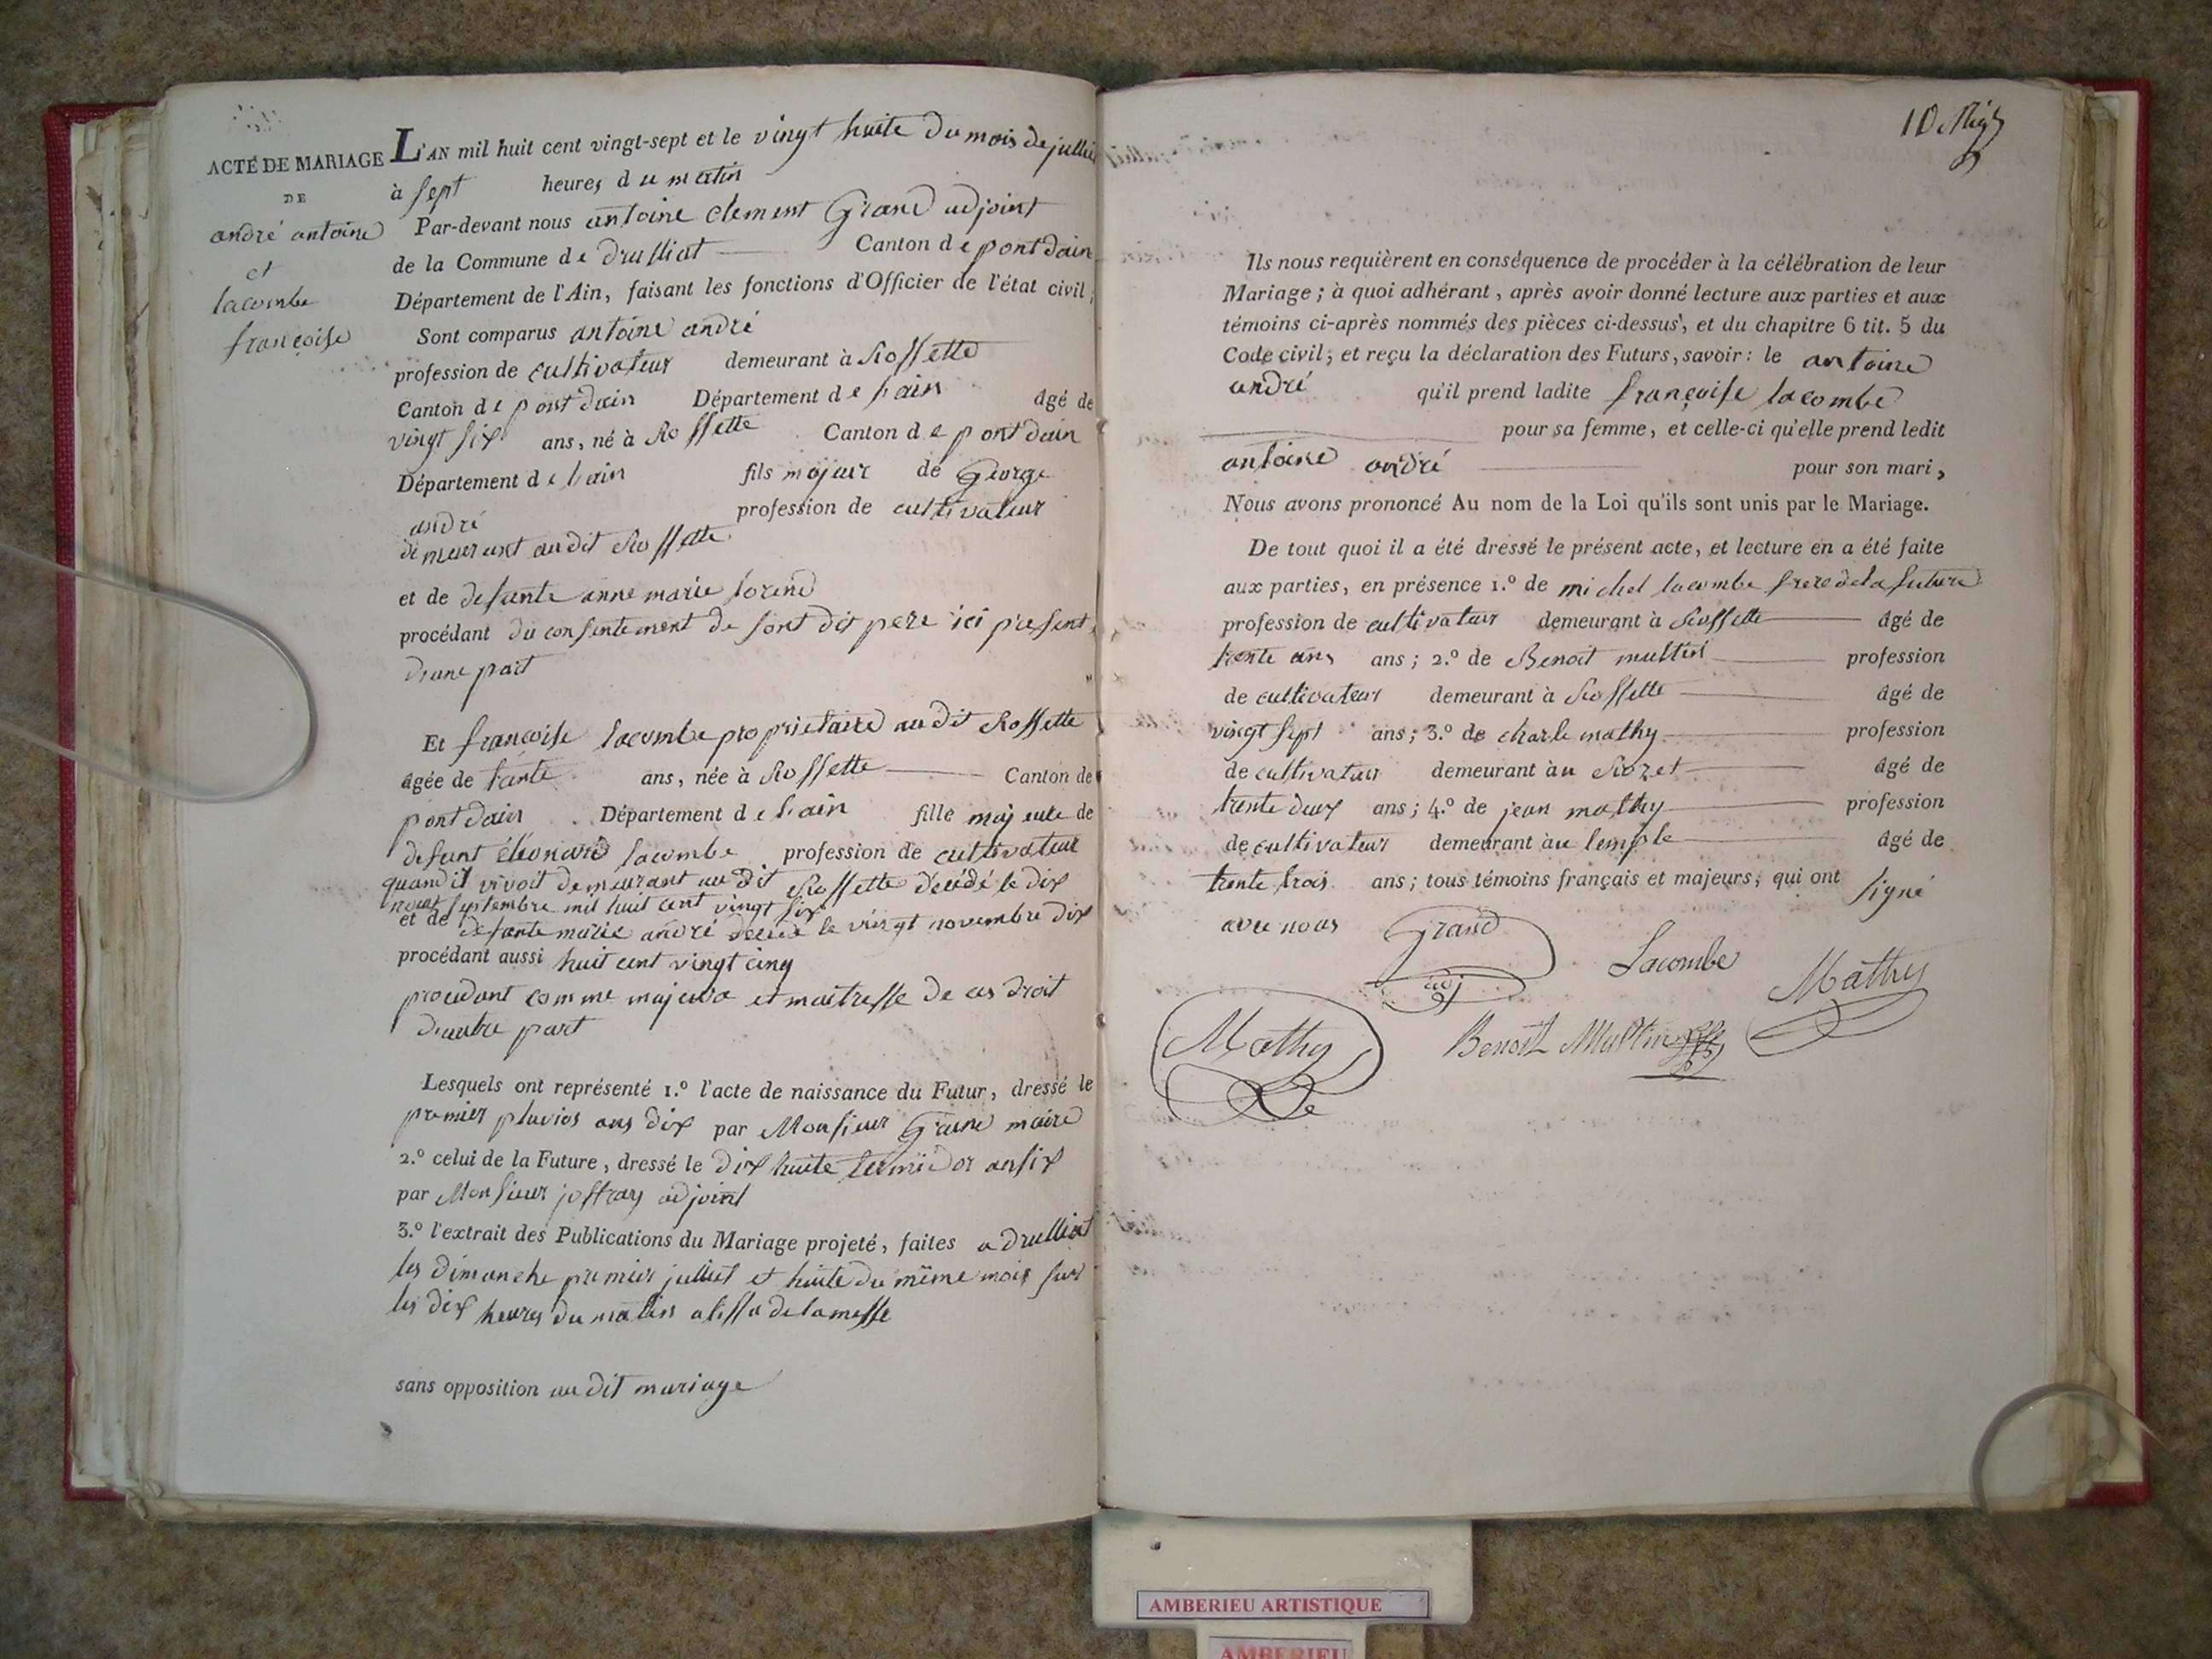 ACTE DE MARIAGE
DE
andré antoine
et
lacombe
françoise
L'AN mil huit cent vingt-sept et le vingt huite du mois de juillet
à sept heures du matin
Par-devant nous antoine clement Grand adjoint
de la Commune de druilliat Canton de pontdain
Département de l'Ain, faisant les fonctions d'Officier de l'état civil,
Sont comparus antoine andré
profession de cultivateur demeurant à Rossette
Canton de pont dain Département de lain âgé de
vingt six ans, né à Rossette Canton de pont dain
Département de lain fils majeur de George
andré profession de cultivateur
demeurant audit Rossette
et de defunte anne marie
procédant du consentement de sont dit pere ici present
d'une part
Et françoise lacombe proprietaire audit Rossette
âgée de tante ans, née à Rossette Canton de
pont dain Département de lain fille majeure de
defunt léonard lacombe profession de cultivateur
quand il vivoit demeurant au dit Rossette décédé le dix
neuf septembre mil huit cent vingt six
et de defunte marie andré décédé le vingt novembre dix
procédant aussi huit cent vingt cinq
procédant comme majeure et maitresse de ces droit
d'autre part
Lesquels ont représenté 1.º l'acte de naissance du Futur, dressé le
premier pluvios ans dix par Monsieur maire
2.º celui de la Future, dressé le dix huite termidor an six
par Monsieur joffray adjoint
3.º l'extrait des Publications du Mariage projeté, faites a druilliat
les dimanche premier juillet et huite du même mois sur
les dix heures du matin a lissu de la messe
sans opposition au dit mariage
10
Ils nous requièrent en conséquence de procéder à la célébration de leur
Mariage; à quoi adhérant, après avoir donné lecture aux parties et aux
témoins ci-après nommés des pièces ci-dessus, et du chapitre 6 tit. 5 du
Code civil; et reçu la déclaration des Futurs, savoir: le antoine
andré qu'il prend ladite françoise lacombe
pour sa femme, et celle-ci qu'elle prend ledit
antoine andré pour son mari,
Nous avons prononcé Au nom de la Loi qu'ils sont unis par le Mariage.
De tout quoi il a été dressé le présent acte, et lecture en a été faite
aux parties, en présence 1.º de michel lacombe frere de la future
profession de cultivateur demeurant à Rossette âgé de
trente ans ans; 2.º de Benoit profession
de cultivateur demeurant à Rossette âgé de
vingt sept ans; 3.º de charle mathy profession
de cultivateur demeurant àu Rozet âgé de
trente deux ans; 4.º de jean mathy profession
de cultivateur demeurant àu temple âgé de
trente trois ans; tous témoins français et majeurs, qui ont signé
avec nous Grand
adj
Lacombe
Mathy
Mathy
Benoit Multin
AMBERIEU ARTISTIQUE
AMBERIEU